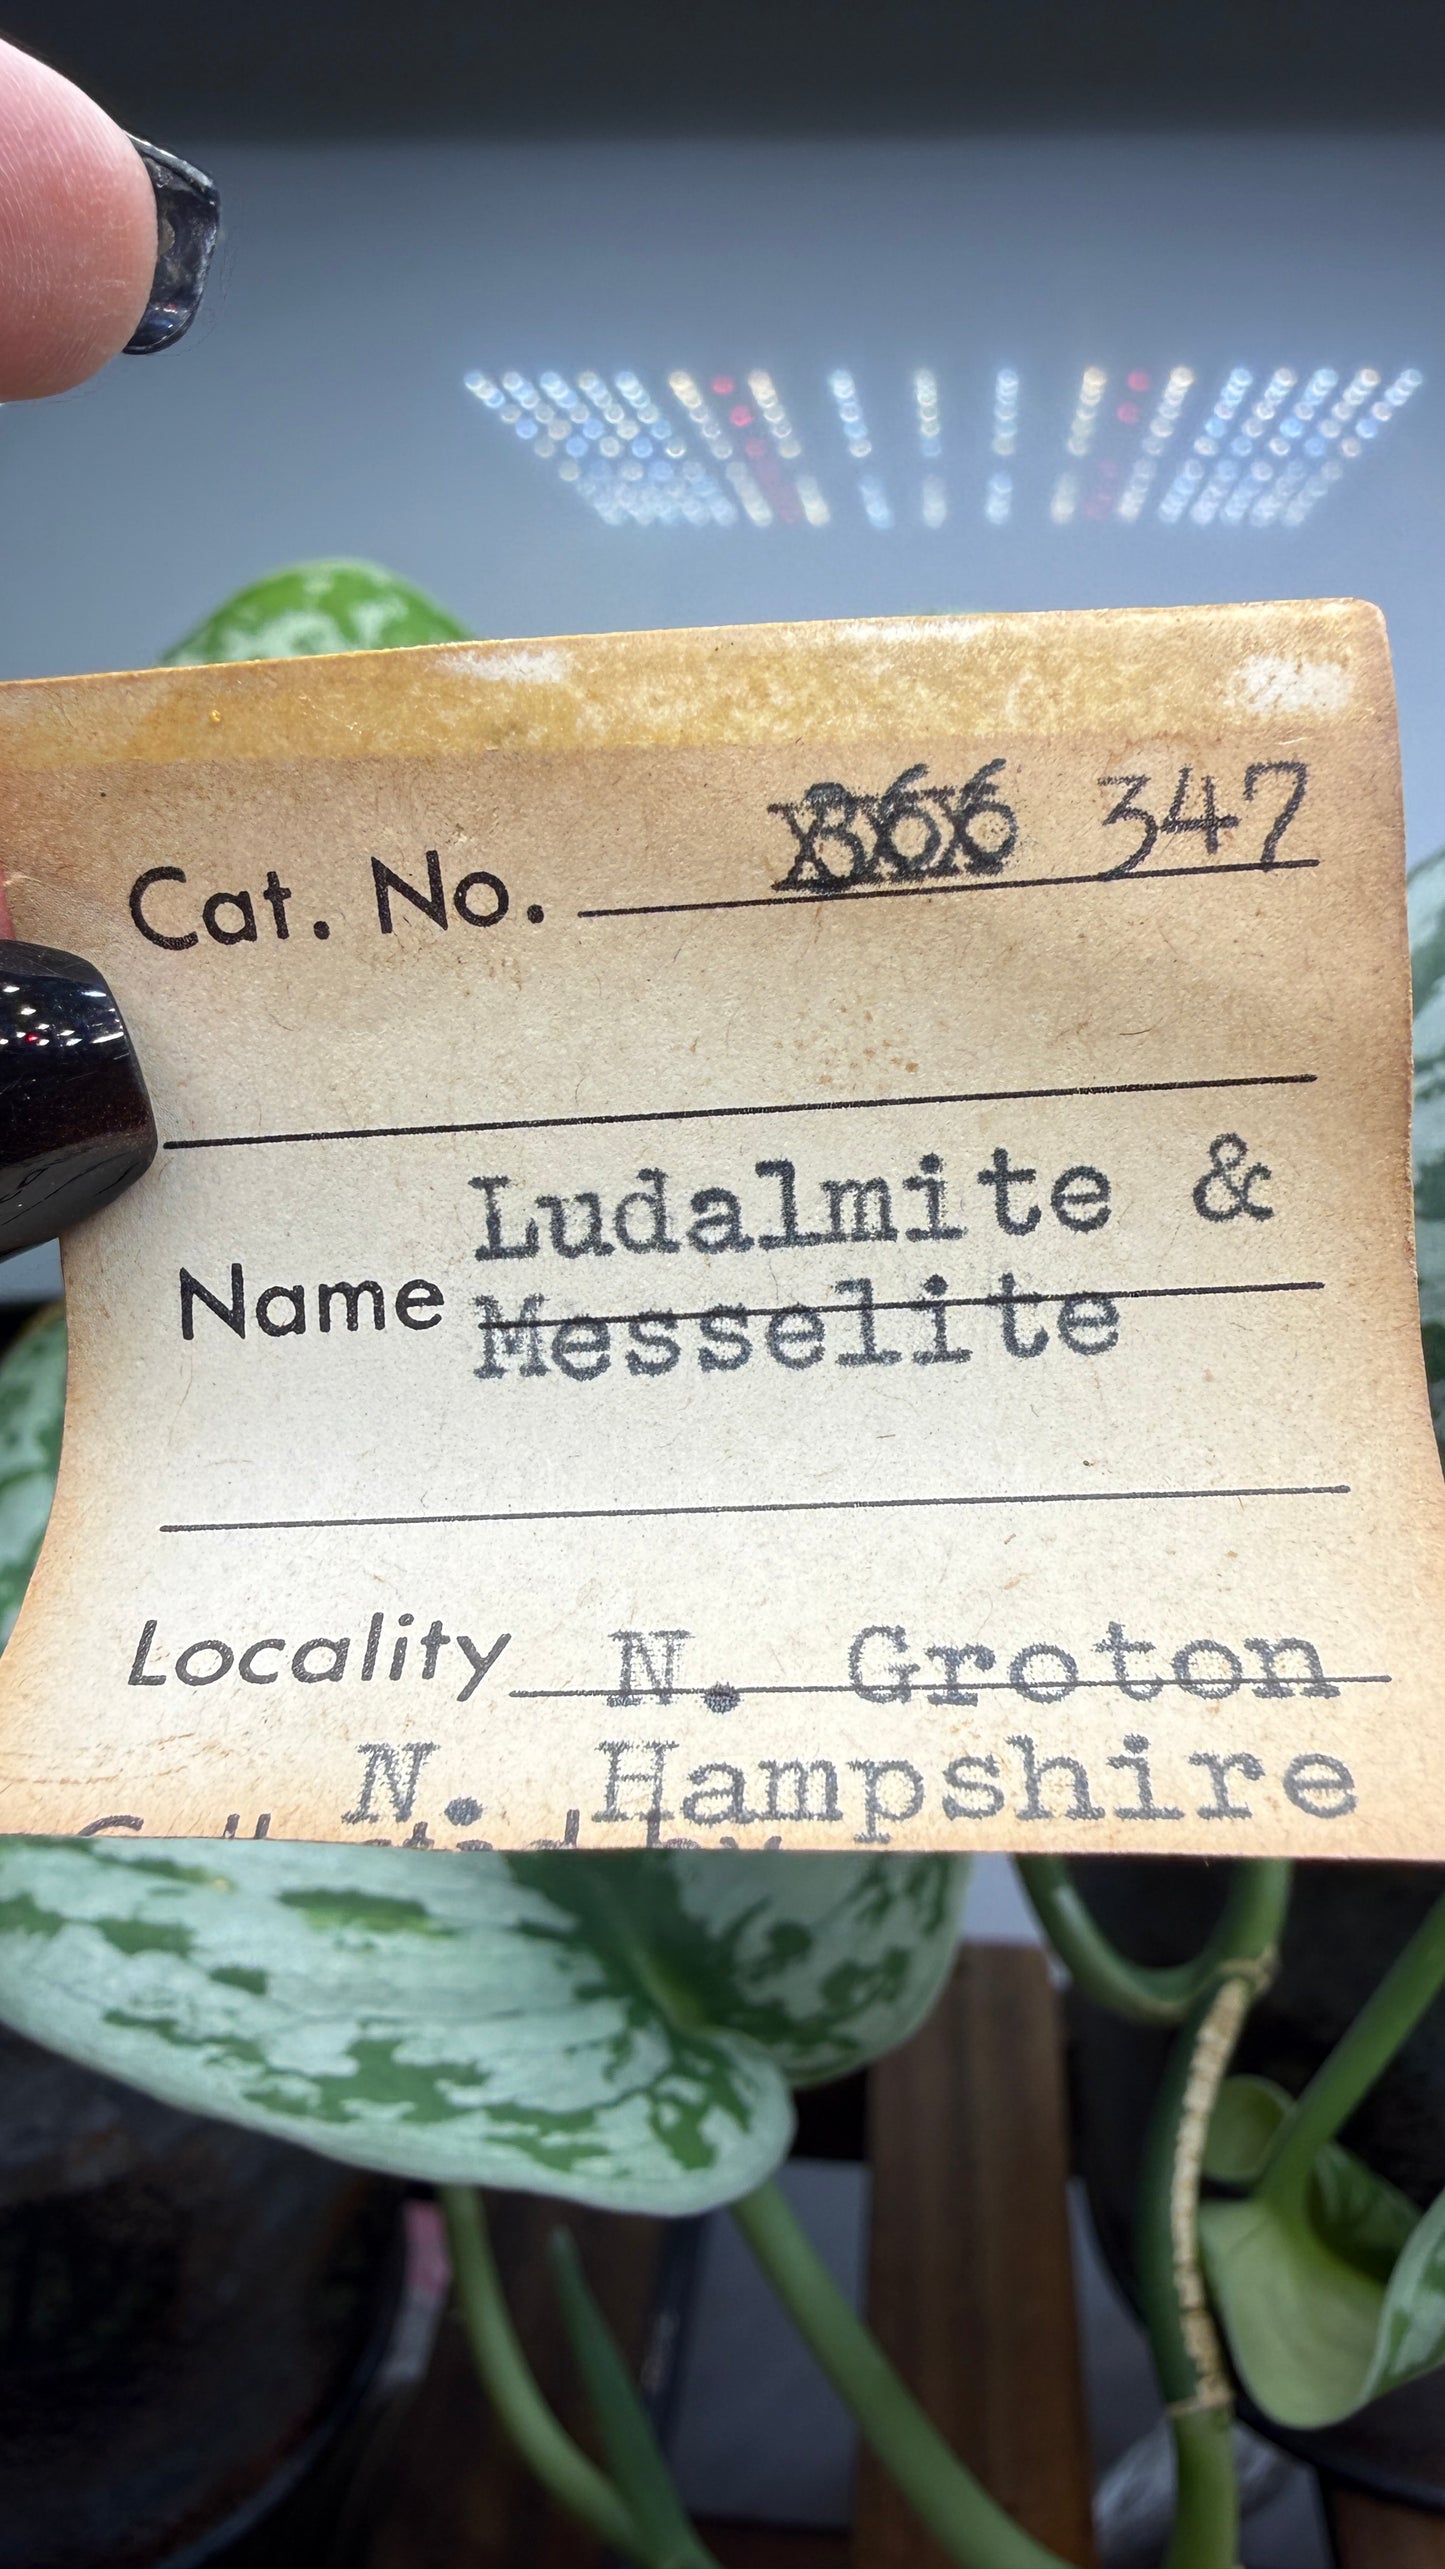 Cat. No. 366 347
Name Ludalmite &
Messelite
Locality N. Groton
N. Hampshire
Collected by